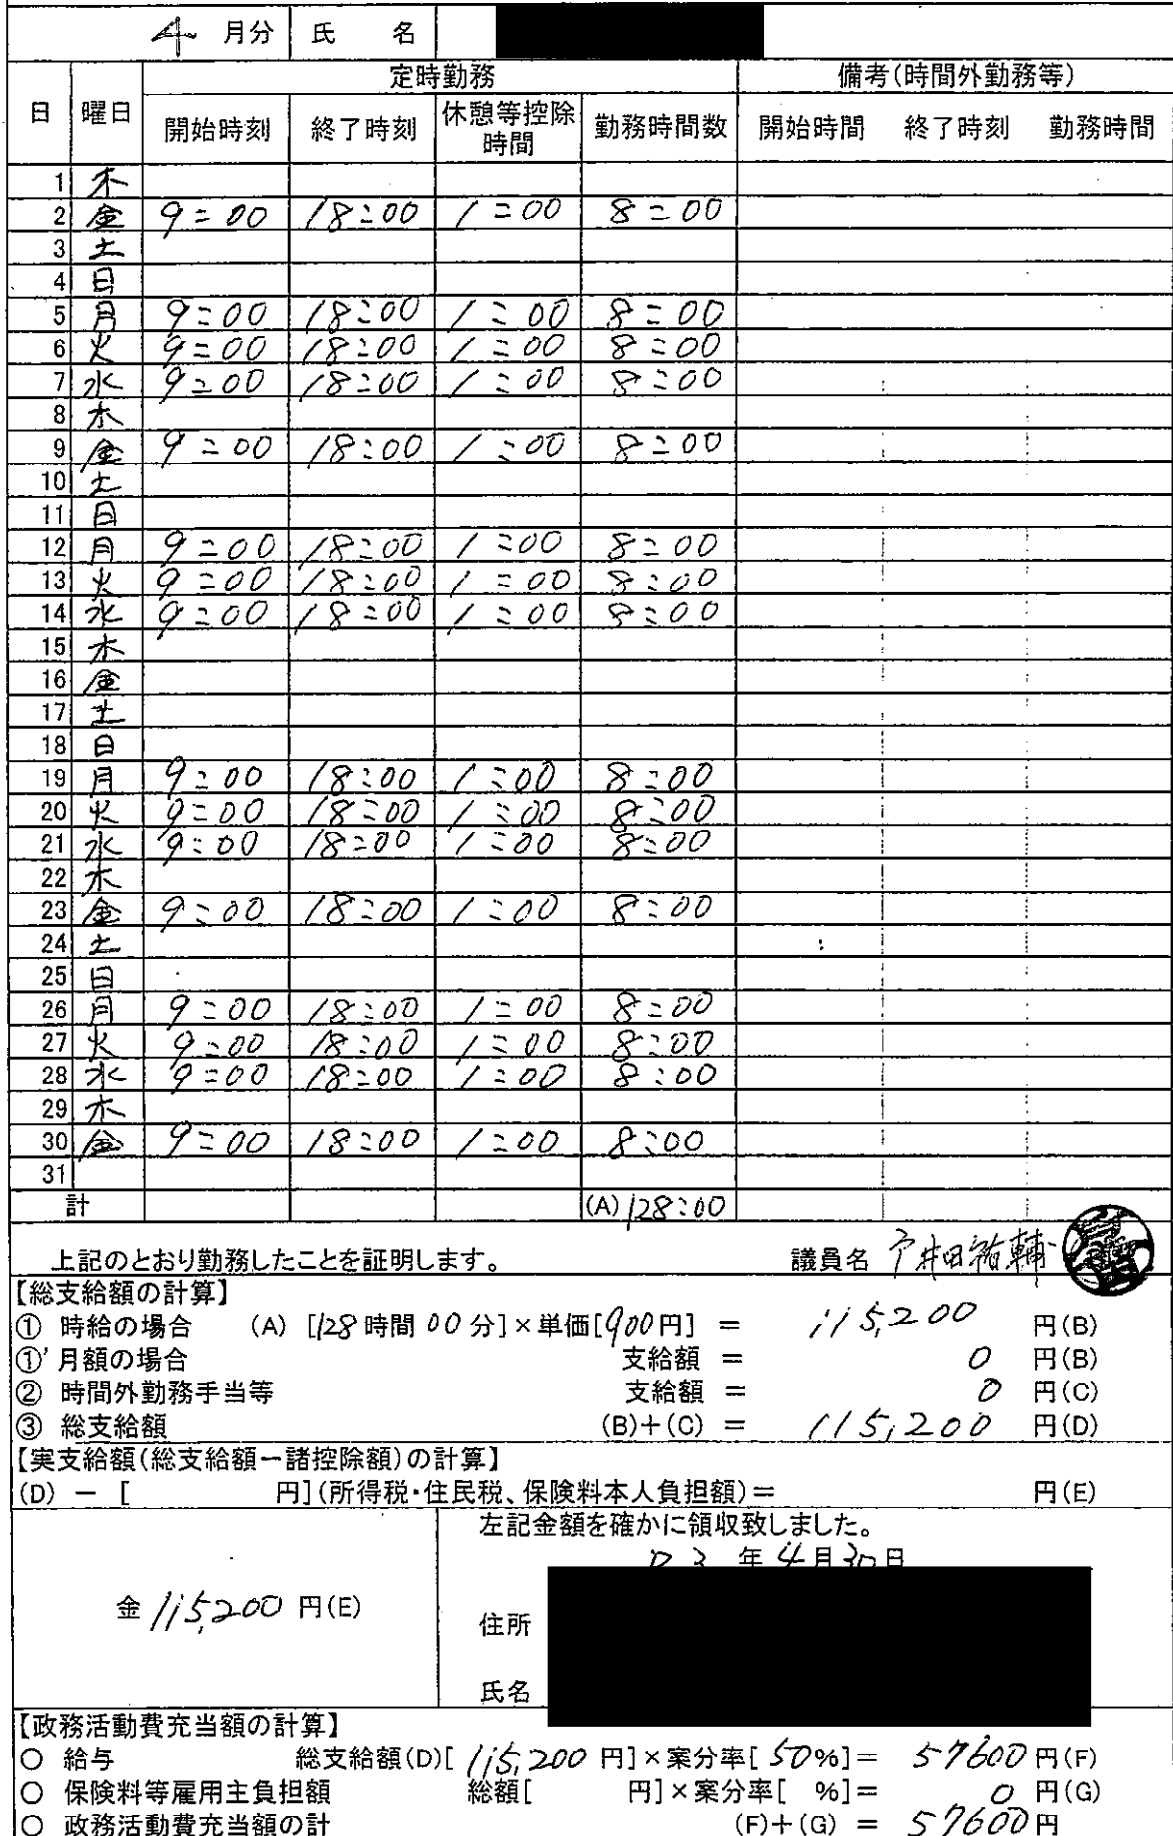 4 月分 氏 名
日 曜日 定時勤務 備考(時間外勤務等)
開始時刻 終了時刻 休憩等控除時間 勤務時間数 開始時間 終了時刻 勤務時間
1 木
2 金 9:00 18:00 1:00 8:00
3 土
4 日
5 月 9:00 18:00 1:00 8:00
6 火 9:00 18:00 1:00 8:00
7 水 9:00 18:00 1:00 8:00
8 木
9 金 9:00 18:00 1:00 8:00
10 土
11 日
12 月 9:00 18:00 1:00 8:00
13 火 9:00 18:00 1:00 8:00
14 水 9:00 18:00 1:00 8:00
15 木
16 金
17 土
18 日
19 月 9:00 18:00 1:00 8:00
20 火 9:00 18:00 1:00 8:00
21 水 9:00 18:00 1:00 8:00
22 木
23 金 9:00 18:00 1:00 8:00
24 土
25 日
26 月 9:00 18:00 1:00 8:00
27 火 9:00 18:00 1:00 8:00
28 水 9:00 18:00 1:00 8:00
29 木
30 金 9:00 18:00 1:00 8:00
31
計 (A) 128:00
上記のとおり勤務したことを証明します。 議員名 戸井田祐輔
【総支給額の計算】
① 時給の場合 (A) [128時間00分]×単価[900円] = 115,200 円(B)
①'月額の場合 支給額 = 0 円(B)
② 時間外勤務手当等 支給額 = 0 円(C)
③ 総支給額 (B)+(C) = 115,200 円(D)
【実支給額(総支給額ー諸控除額)の計算】
(D) - [ 円](所得税・住民税、保険料本人負担額)= 円(E)
左記金額を確かに領収致しました。
年4月30日
金 115,200 円(E)
住所
氏名
【政務活動費充当額の計算】
○ 給与 総支給額(D)[115,200 円]×案分率[50%]= 57600円(F)
○ 保険料等雇用主負担額 総額[ 円]×案分率[ %]= 0 円(G)
○ 政務活動費充当額の計 (F)+(G) = 57600円